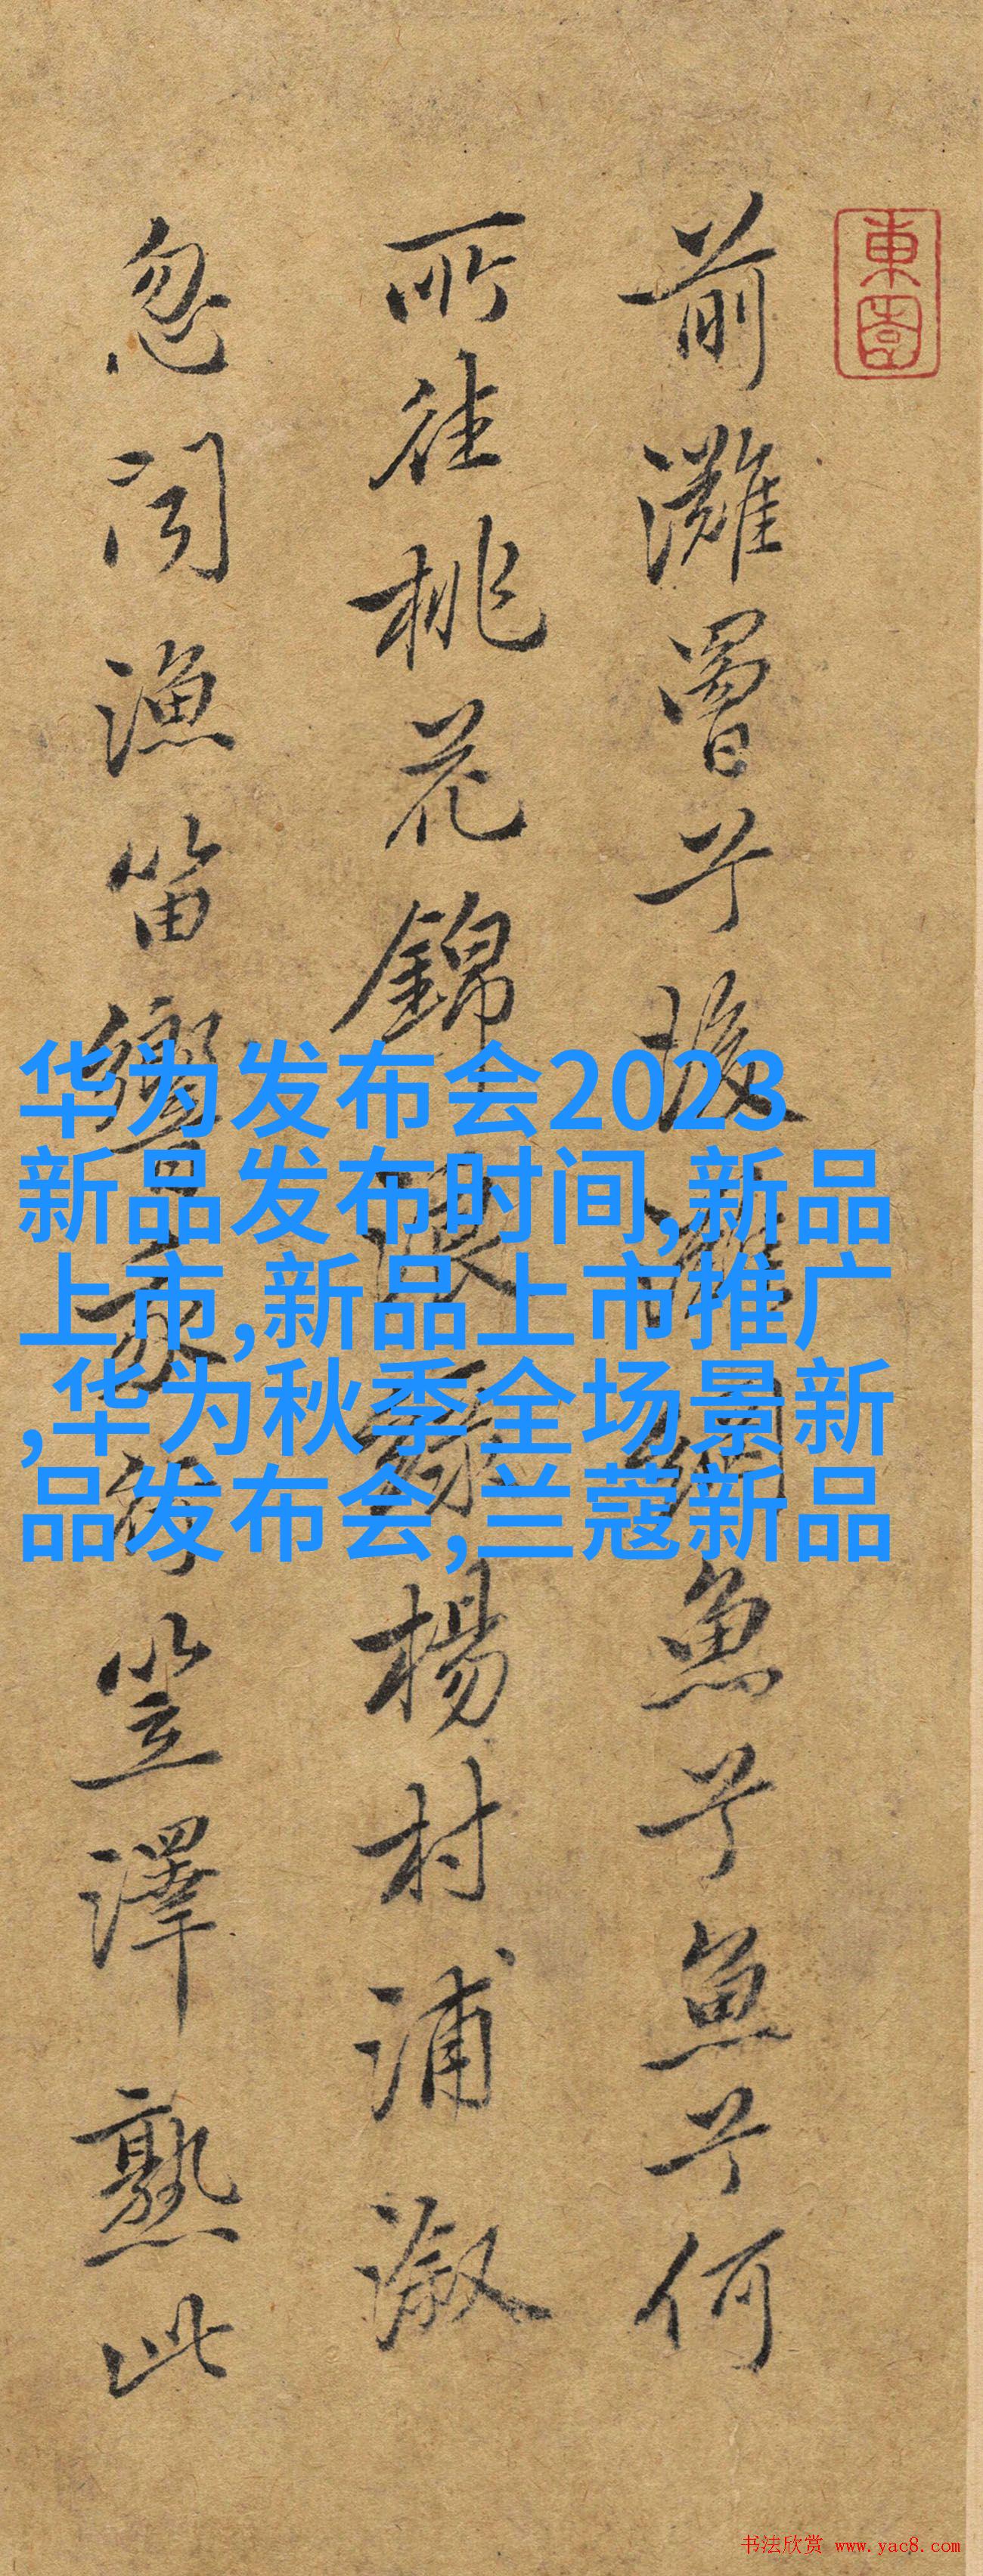 東園
前灘罾兮後灘網魚兮魚兮何
所往桃花錦浪綠楊村浦漵
忽聞漁笛響家笠澤熟此
华为发布会2023
新品发布时间,新品
上市,新品上市推广
,华为秋季全场景新
品发布会,兰蔻新品
书法欣赏 www.yac8.com